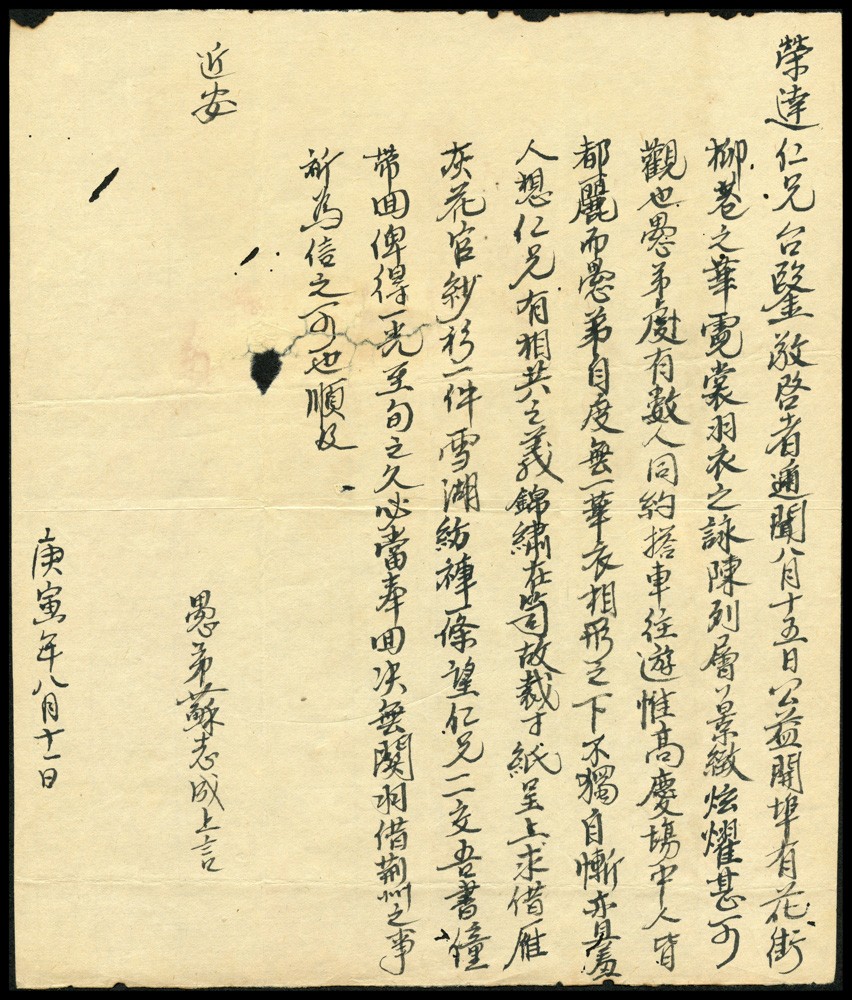 榮達仁兄台鑒敬啓者通聞八月十五日公益開埠有花街
柳巷之華霓裳羽衣之詠陳列層景緻炫燿甚可
觀也愚弟處有數人同約搭車往遊惟髙慶塲中人皆
都麗而愚弟自度無一華衣相形之下不獨自慚亦且羞
人想仁兄有相共之義錦繡在笥故裁寸紙呈上求借雁
灰花官紗衫一件雪湖紡褲一條望仁兄二交吾書僮
帶回俾得一光至旬之久必當奉回决無関羽借荆州之事
祈為信之可也順及
近安
愚弟蘇志成上言
庚寅年八月十一日